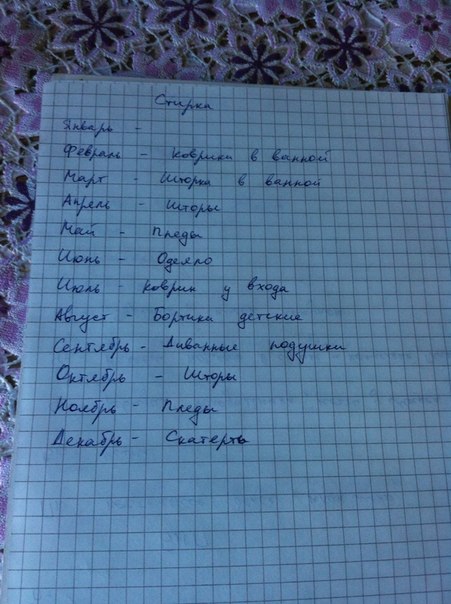 Стирка
Январь -
Февраль - коврики в ванной
Март - Шторка в ванной
Апрель - Шторы
Май - Пледы
Июнь - Одеяло
Июль - коврик у входа
Август - Бортики детские
Сентябрь - Диванные подушки
Октябрь - Шторы
Ноябрь - Пледы
Декабрь - Скатерть